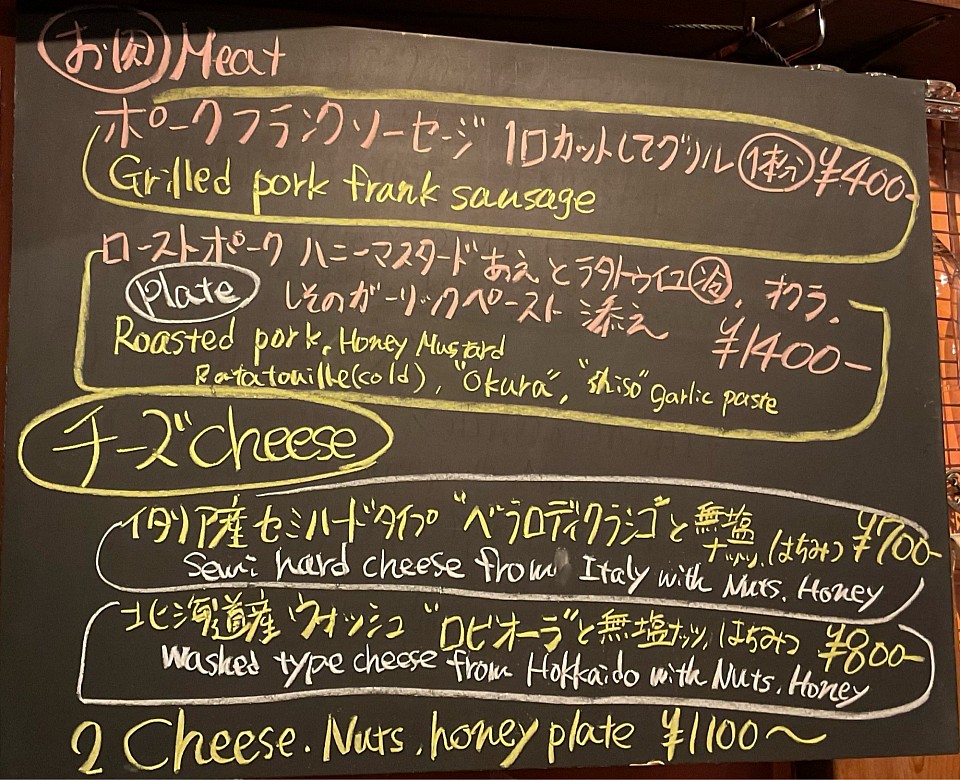 お肉 Meat
ポークフランクソーセージ 1口カットしてグリル 1本分 ¥400-
Grilled pork frank sausage
ローストポーク ハニーマスタードあえとラタトゥイユ冷、オクラ、
Plate しそのガーリックペースト添え ¥1400-
Roasted pork, Honey Mustard
Ratatouille(cold), "Okura", "shiso" garlic paste
チーズ cheese
イタリア産セミハードタイプ "ベラロディクラシゴ"と無塩ナッツ、はちみつ ¥700-
Semi hard cheese from Italy with Nuts. Honey
北海道産 ウォッシュ "ロビオーラ"と無塩ナッツ、はちみつ ¥800-
Washed type cheese from Hokkaido with Nuts. Honey
2 Cheese. Nuts, honey plate ¥1100～